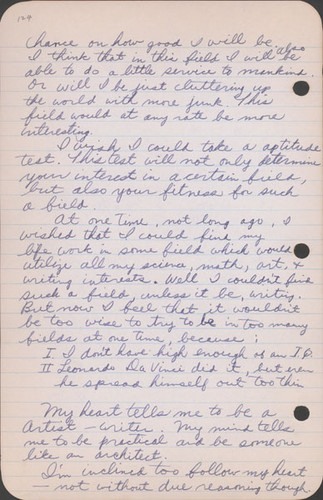 129
Chance on how good I will be.
I think that in this field I will be also
able to do a little service to mankind.
Or will I be just cluttering up
the world with more junk. This
field would at any rate be more
interesting.
I wish I could take a aptitude
test. This test will not only determine
your interest in a certain field,
but also your fitness for such
a field.
At one time, not long ago, I
wished that I could find my
life work in some field which would
utilize all my science, math, art, &
writing interests. Well I couldn't find
such a field, unless it be, writing.
But now I feel that it wouldn't
be too wise to try to be in too many
fields at one time, because:
I I don't have high enough of an I.Q.
II Leonardo Da Vinci did it, but even
he spread himself out too thin
My heart tells me to be a
Artist - writer. My mind tells
me to be practical and be someone
like an architect.
I'm inclined too follow my heart
- not without due reasoning though